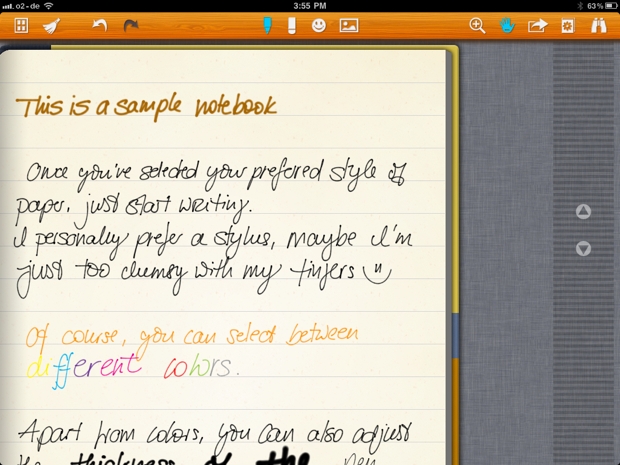 o2-de
3:55 PM
63%
This is a sample notebook
Once you've selected your preferred style of
paper, just start writing.
I personally prefer a stylus, maybe I'm
just too clumsy with my fingers
Of course, you can select between
different colors.
Apart from colors, you can also adjust
the thickness of the pen